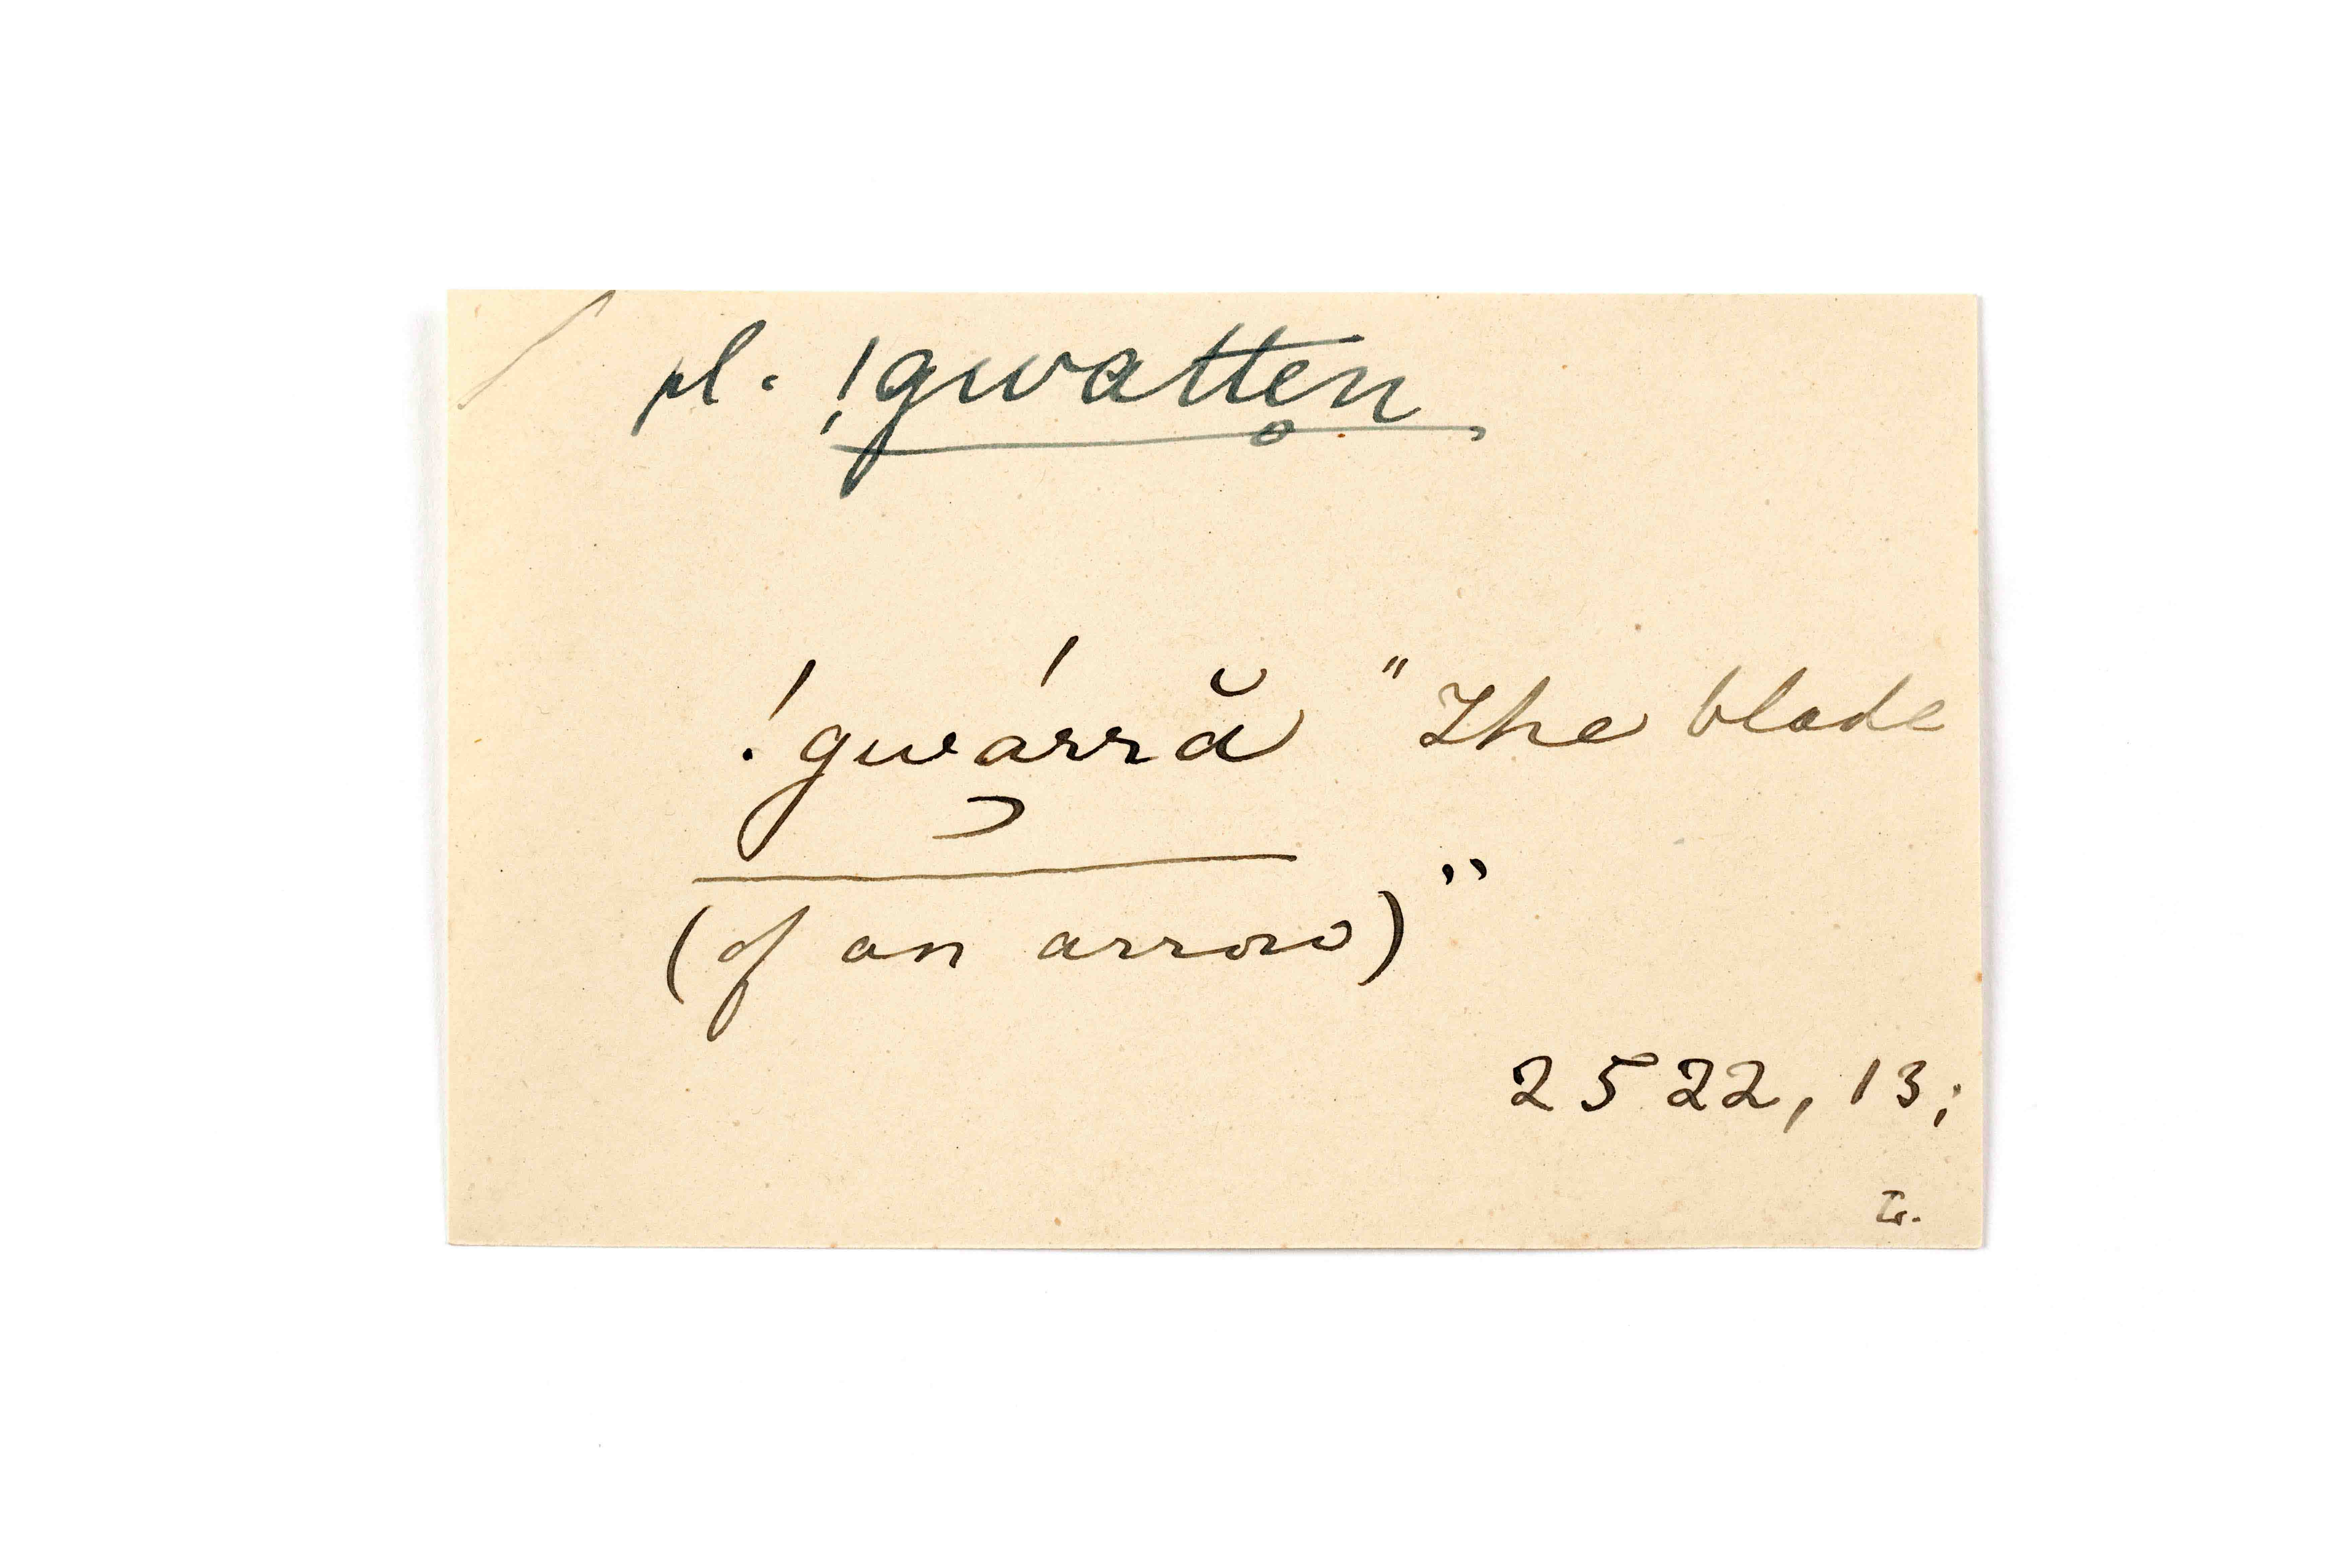 pl. !gwatten̥
!gwárră "The blade
(of an arrow)"
2522, 13;